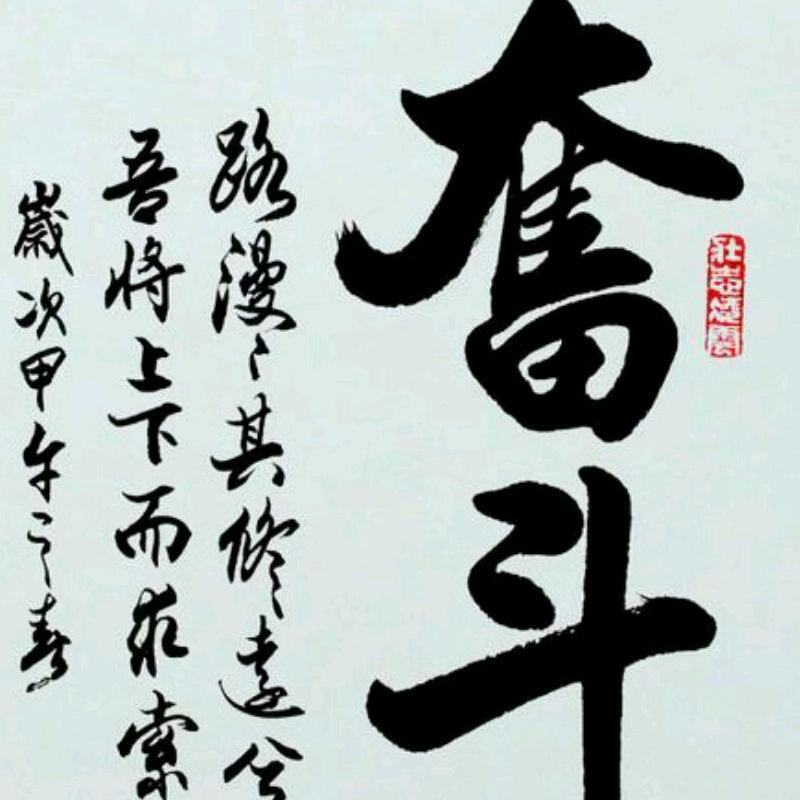 奮斗
壯志凌雲
路漫〻其修遠兮
吾將上下而求索
歲次甲午之春